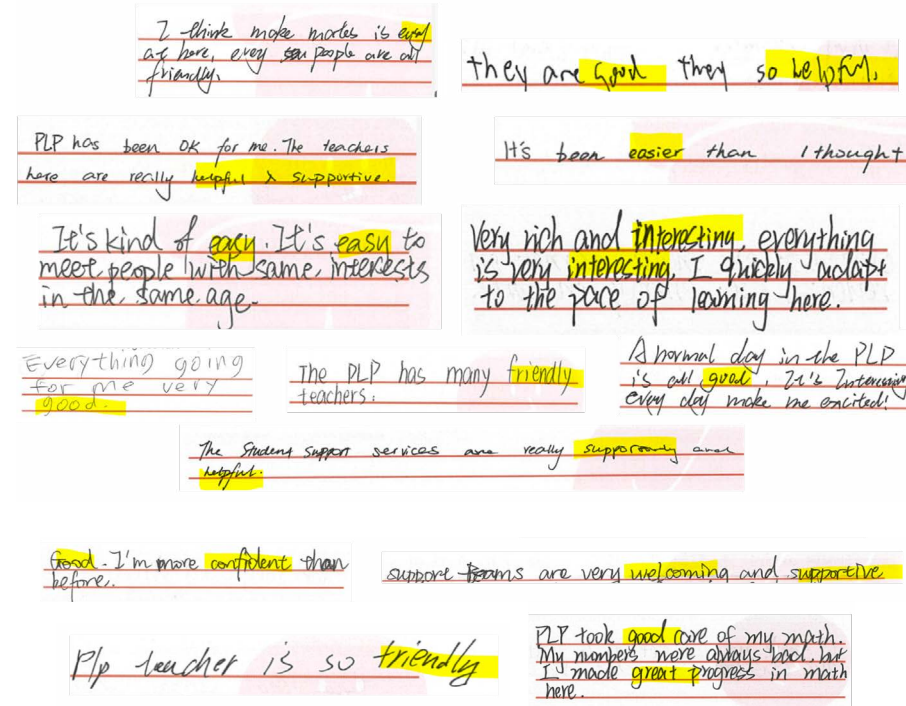 I think make mates is easy
at here, every people are all
friendly.
they are Good they so helpful.
PLP has been OK for me. The teachers
here are really helpful & supportive.
It's been easier than I thought
It's kind of easy. It's easy to
meet people with same interests
in the same age.
Very rich and interesting, everything
is very interesting. I quickly adapt
to the pace of learning here.
Everything going
for me very
good.
The PLP has many friendly
teachers.
A normal day in the PLP
is all good. It's
every day make me excited!
The Student support services are really and
helpful.
Good. I'm more confident than
before.
support teams are very welcoming and supportive
Plp teacher is so friendly
PLP took good care of my math.
My numbers were always bad. but
I made great progress in math
here.